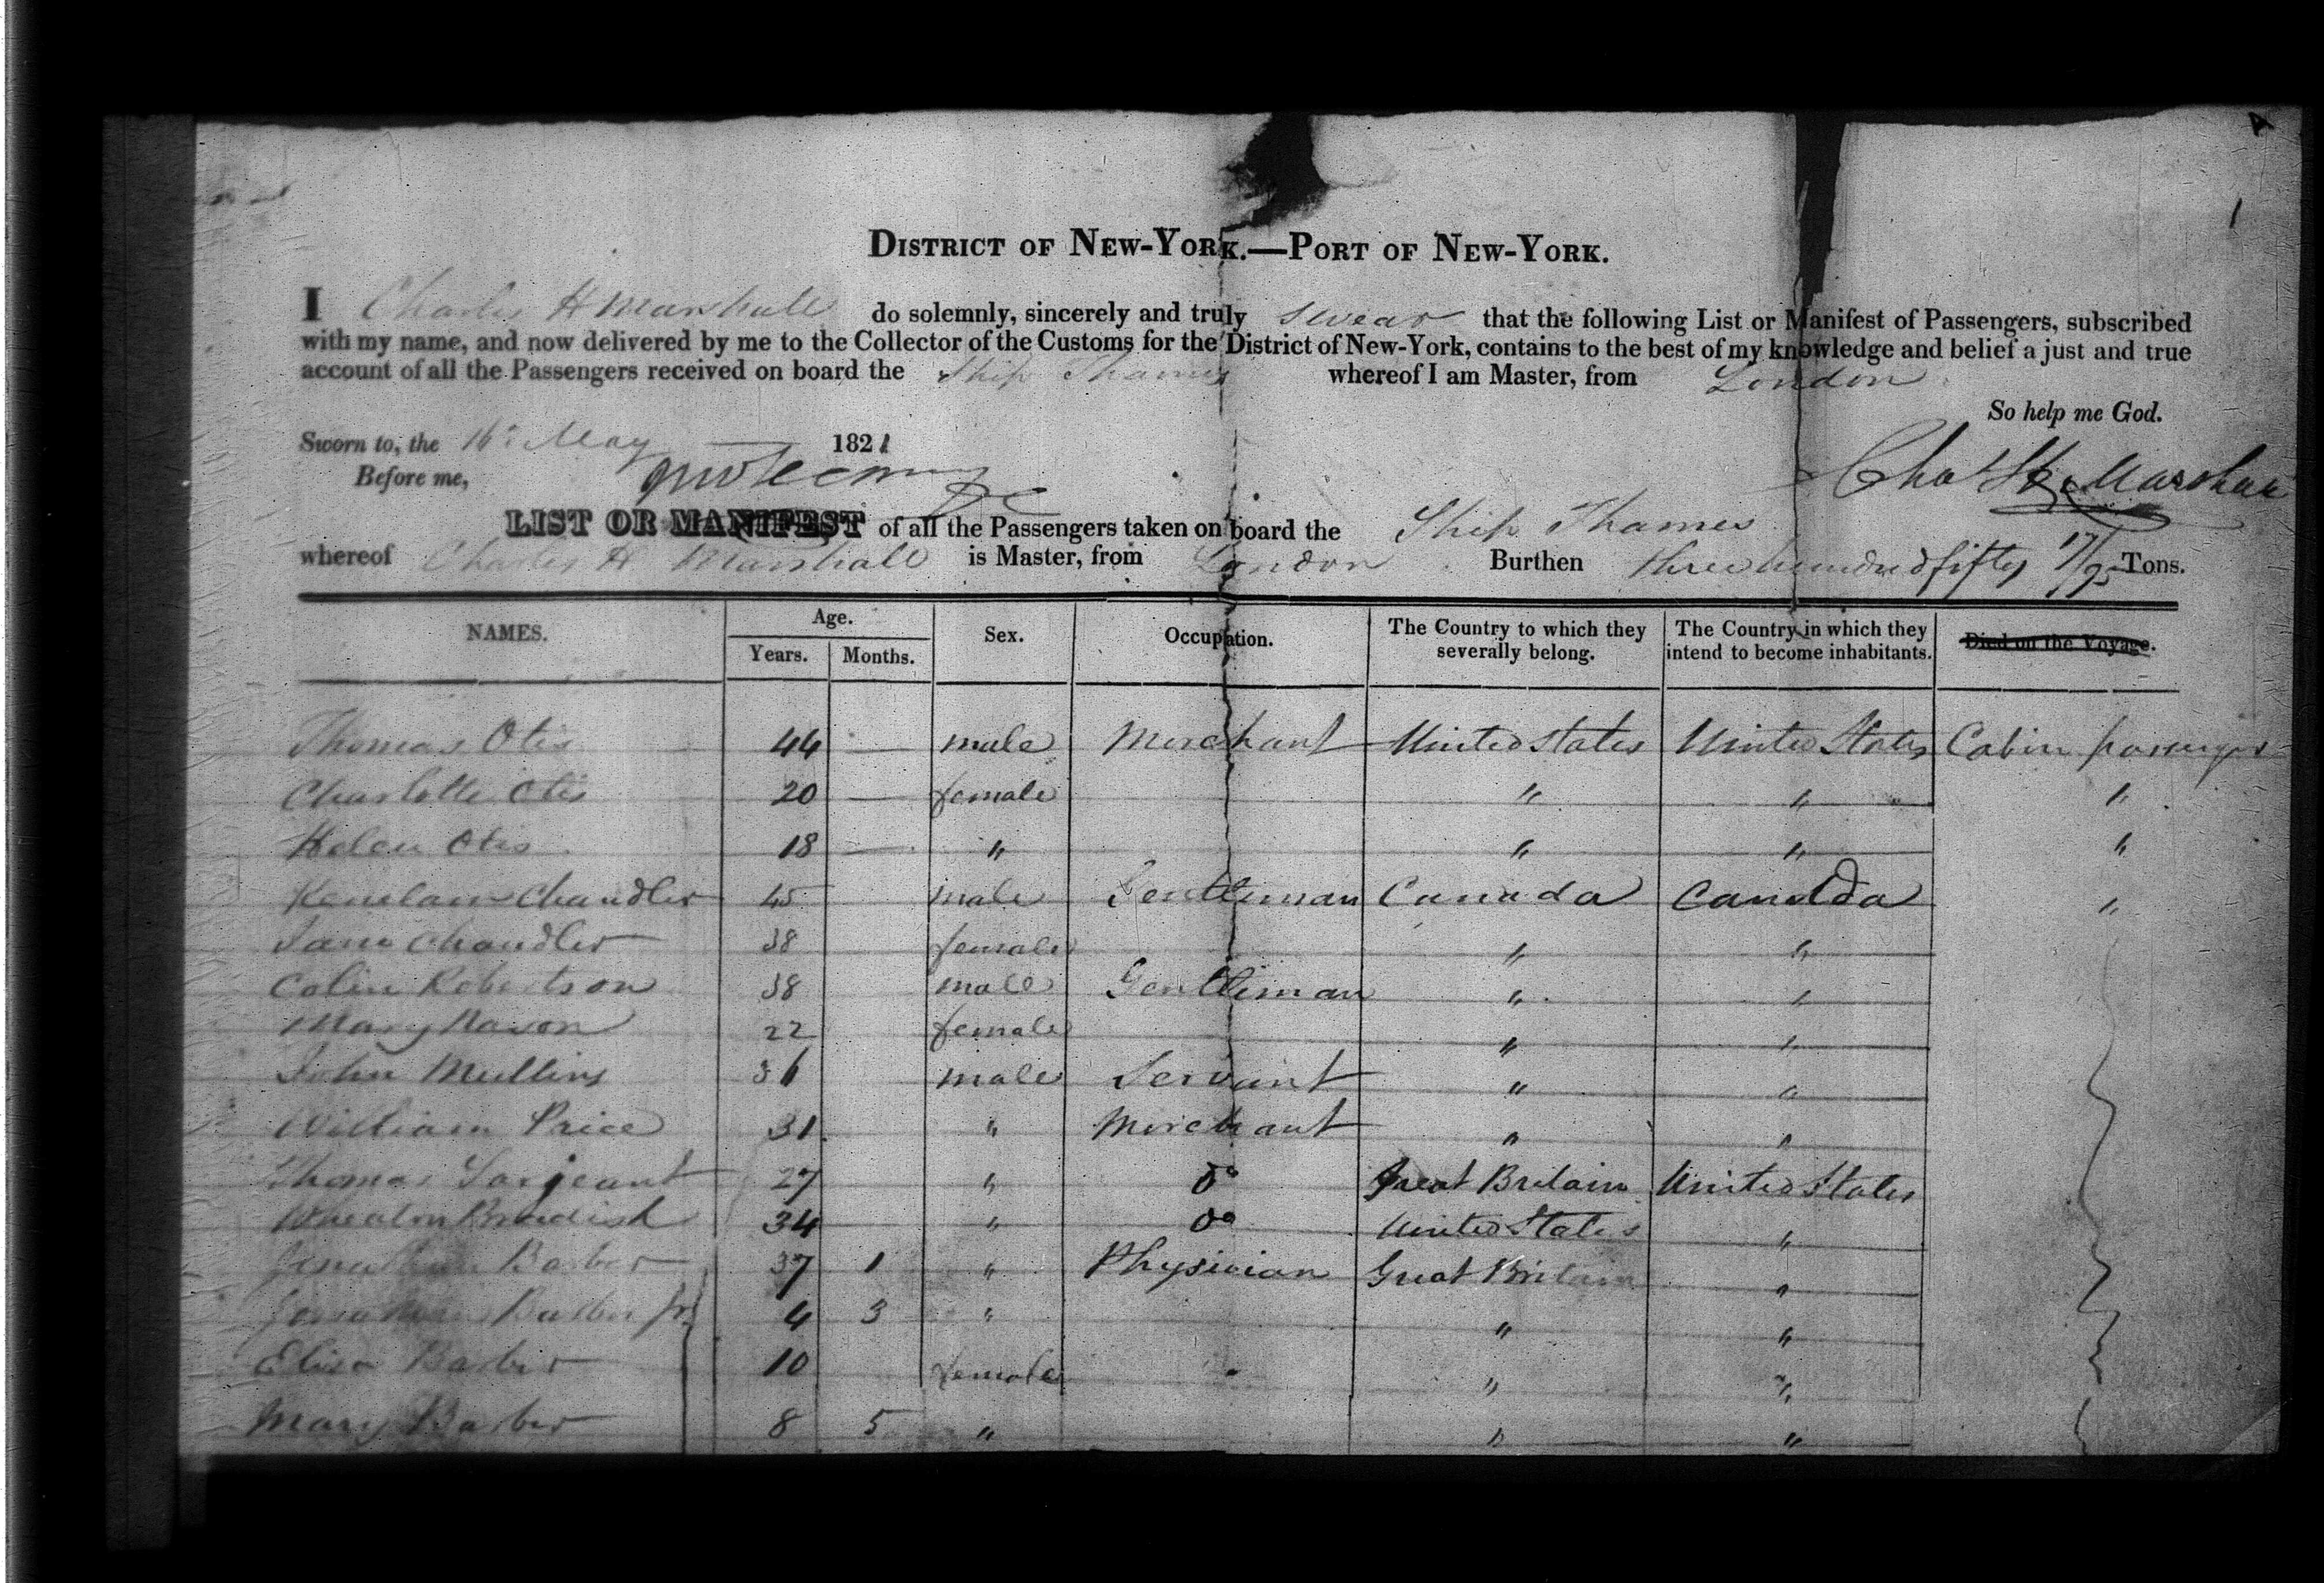 DISTRICT OF NEW-YORK.—PORT OF NEW-YORK.
I Charles H Marshall do solemnly, sincerely and truly swear that the following List or Manifest of Passengers, subscribed
with my name, and now delivered by me to the Collector of the Customs for the District of New-York, contains to the best of my knowledge and belief a just and true
account of all the Passengers received on board the Ship Thames whereof I am Master, from London
So help me God.
Sworn to, the 16th May 1821
Before me,
Chas H. Marshall
LIST OR MANIFEST of all the Passengers taken on board the Ship Thames
whereof Charles H Marshall is Master, from London Burthen three hundred fifty 17/95 Tons.
NAMES. Age. Years. Months. Sex. Occupation. The Country to which they severally belong. The Country in which they intend to become inhabitants. Died on the Voyage.
Thomas Otis 44 — male Merchant United States United States Cabin passengers
Charlotte Otis 20 — female " " "
Helen Otis 18 — " " " "
Chandler 45 male Gentleman Canada Canada "
Jane Chandler 38 female " "
Colin Robertson 38 male Gentleman " "
Mary 22 female " "
John Mullins 36 male Servant " "
William Price 31 " Merchant " "
Thomas Sargeant 27 " Do Great Britain United States
Wheaton Bradish 34 " Do United States "
Jonathan Barber 37 1 " Physician Great Britain "
Jonathan Barber Jr. 4 3 " " "
Eliza Barber 10 female " "
Mary Barber 8 5 " " "